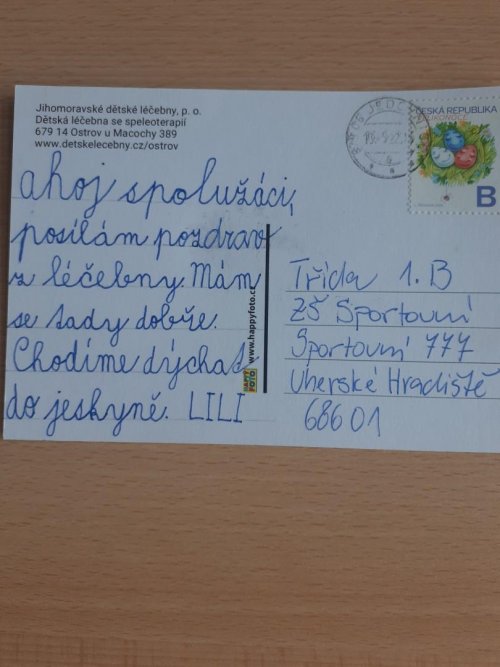 Jihomoravské dětské léčebny, p. o.
Dětská léčebna se speleoterapií
679 14 Ostrov u Macochy 389
www.detskelecebny.cz/ostrov
ahoj spolužáci,
posílám pozdrav
z léčebny. Mám
se tady dobře.
Chodíme dýchat
do jeskyně. LILI
www.happyfoto.cz
HAPPY
FOTO
ČESKÁ REPUBLIKA
VELIKONOCE
B
Třída 1. B
ZŠ Sportovní
Sportovní 777
Uherské Hradiště
686 01